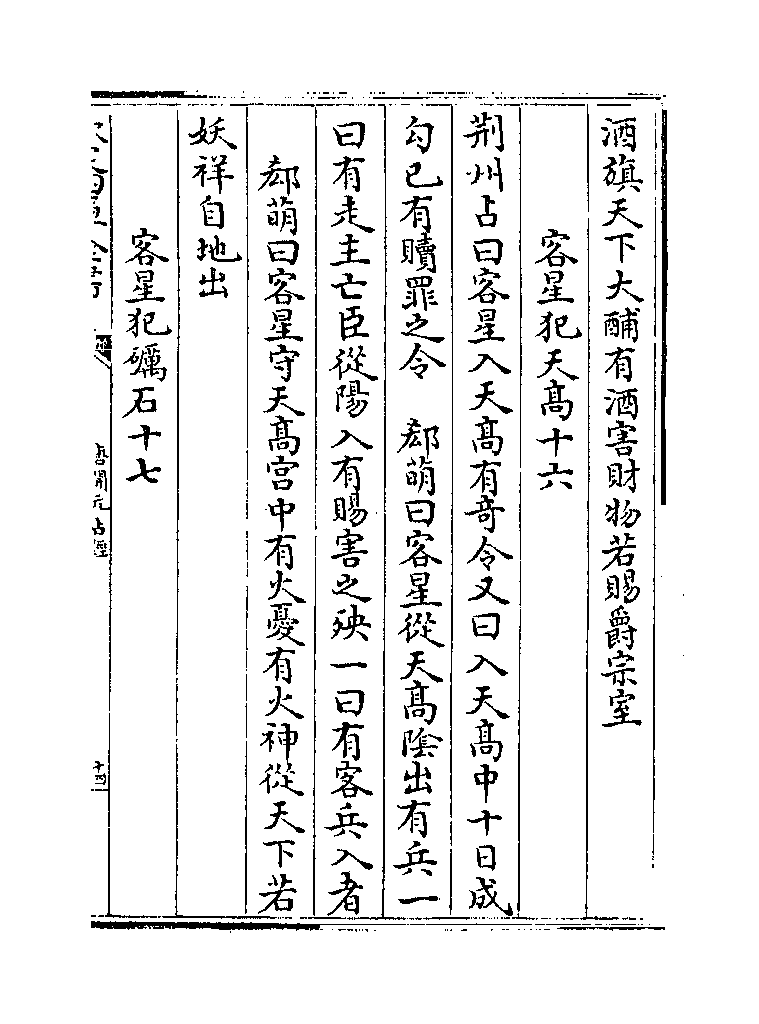 酒旗天下大酺有酒害財物若賜爵宗室
客星犯天髙十六
荆州占曰客星入天髙有竒令又曰入天髙中十日成
勾已有贖罪之令　郗萌曰客星從天髙陰出有兵一
曰有走主亡臣從陽入有賜害之殃一曰有客兵入者
郗萌曰客星守天髙宫中有火憂有火神從天下若
妖祥自地出
客星犯礪石十七
唐開元占經
十四